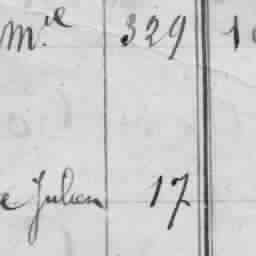 M.ie 329 1
e Julien 17